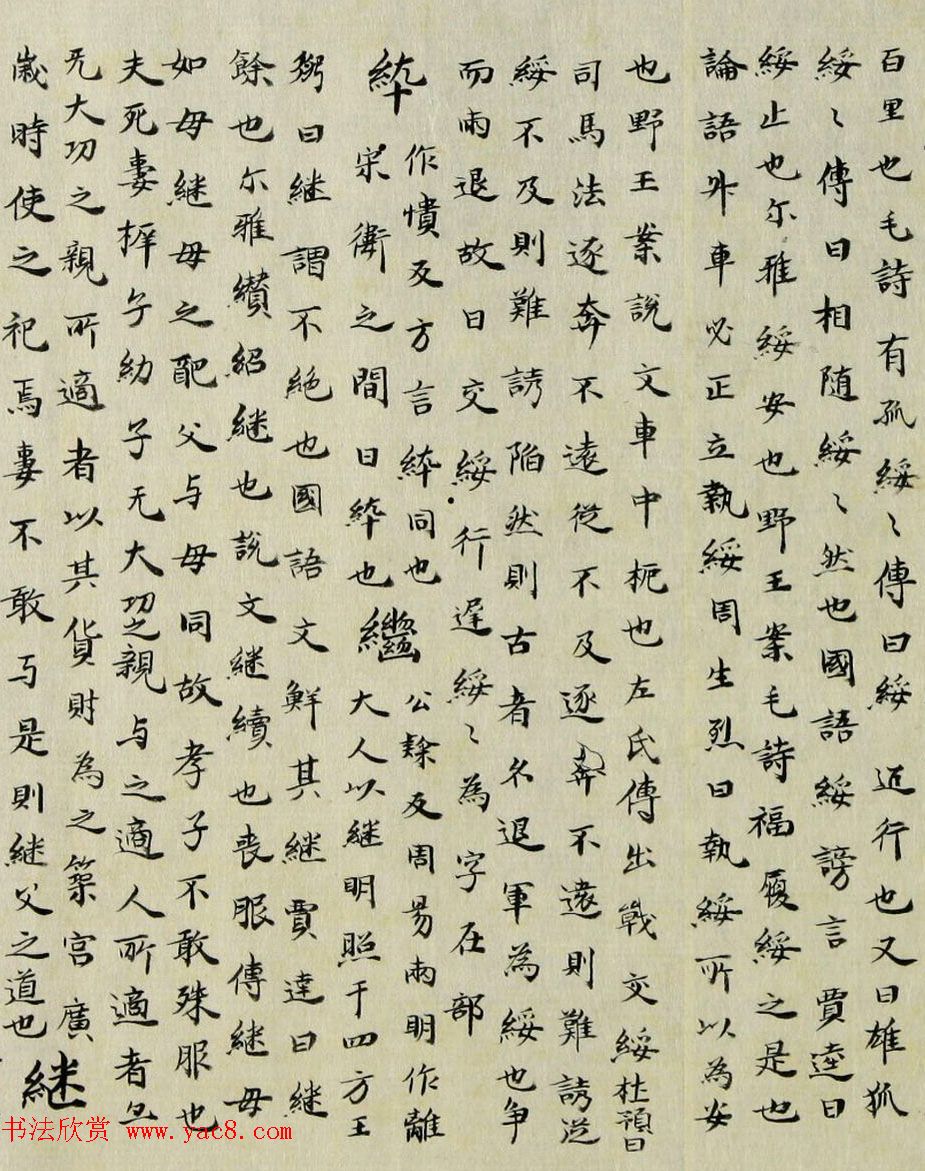 百里也毛詩有孤綏〻傳曰綏〻近行也又曰雄狐
綏〻傳曰相随綏〻然也國語綏謗言賈逵曰
綏止也尔雅綏安也野王案毛詩福履綏之是也
論語升車必正立執綏周生烈曰執綏所以為安
也野王案說文車中把也左氏傳出戰交綏杜預曰
司馬法逐奔不遠從不及逐奔不遠則難誘從
綏不及則難誘陷然則古者名退軍為綏也争
而兩退故曰交綏行遅綏〻為字在部
綷作憒反方言綷同也 繼公䋛反周易兩明作離
宋衛之間曰綷也 大人以継明照于四方王
弼曰継謂不絶也國語文鮮其継賈逵曰継
餘也尔雅纉紹継也說文継續也喪服傳継母
如母継母之配父与母同故孝子不敢殊服也
夫死妻稺子幼子无大功之親与之適人所適者亦
无大功之親所適者以其貨財為之築宮廣
歳時使之祀焉妻不敢与是則継父之道也 継
书法欣赏 www.yac8.com